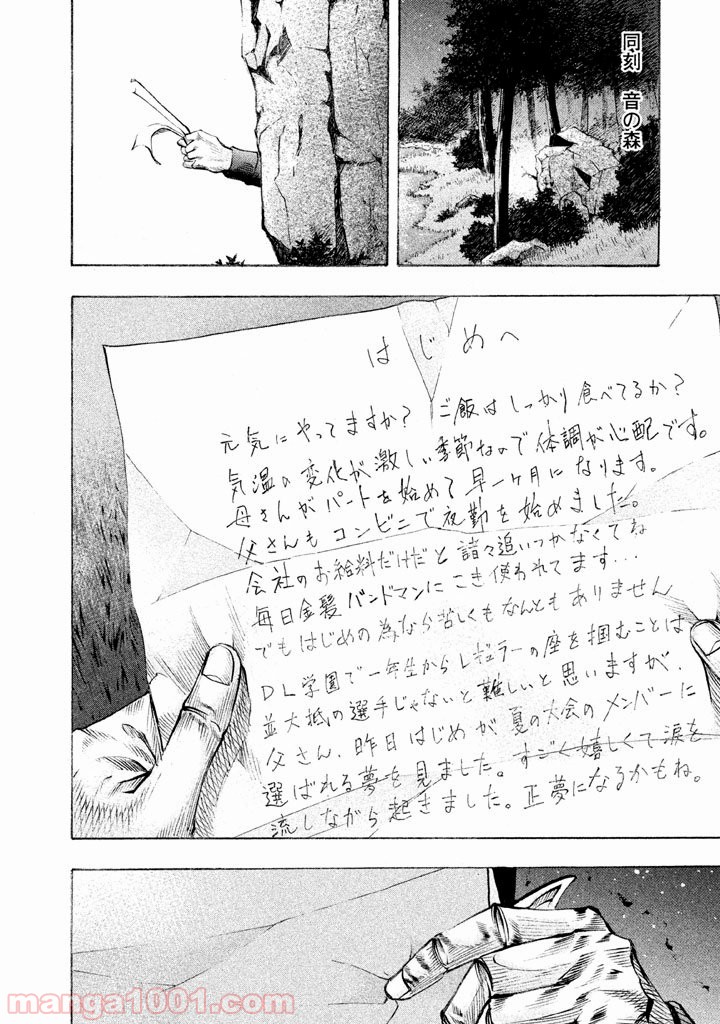 同刻 音の森
はじめへ
元気にやってますか？ ご飯はしっかり食べてるか？
気温の変化が激しい季節なので体調が心配です。
母さんがパートを始めて早一ヶ月になります。
父さんもコンビニで夜勤を始めました。
会社のお給料だけだと諸々追いつかなくてね
毎日金髪バンドマンにこき使われてます…
でもはじめの為なら苦しくもなんともありません
DL学園で一年生からレギュラーの座を掴むことは
並大抵の選手じゃないと難しいと思いますが、
父さん、昨日はじめが夏の大会のメンバーに
選ばれる夢を見ました。すごく嬉しくて涙を
流しながら起きました。正夢になるかもね。
manga1001.com